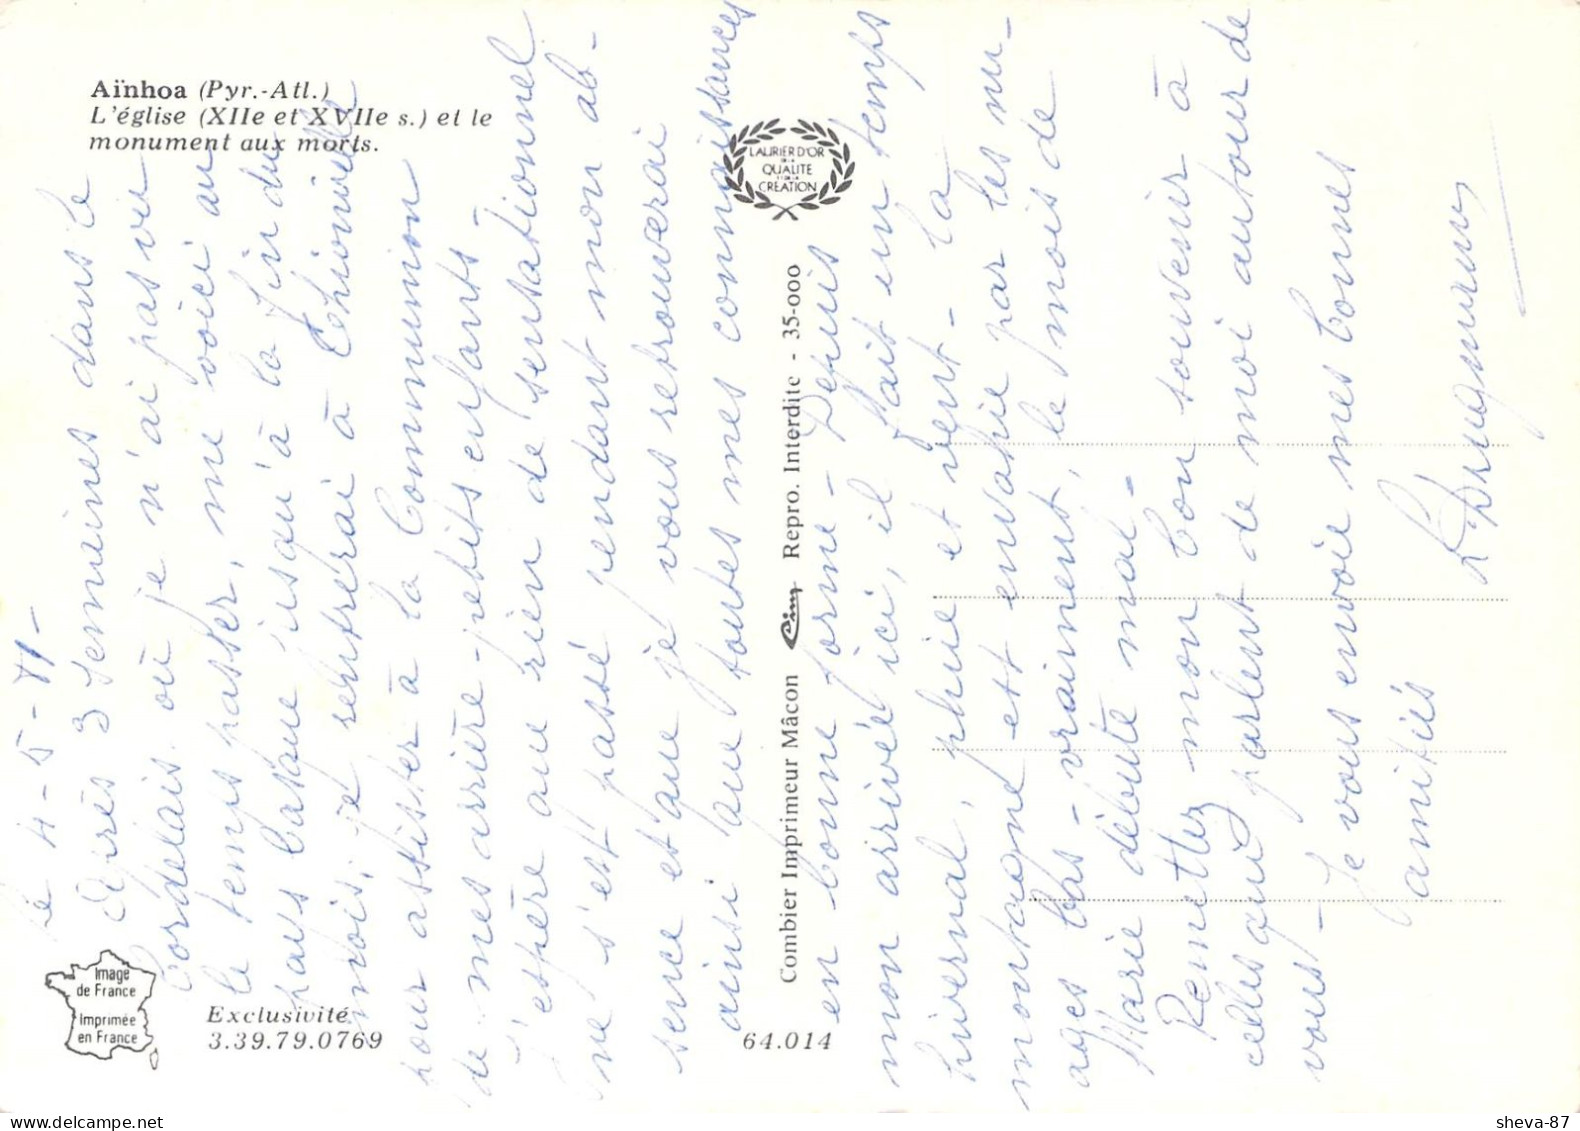 Aïnhoa (Pyr.-Atl.)
L'église (XIIe et XVIIe s.) et le
monument aux morts.
LAURIER D'OR
DE LA
QUALITE
ET DE LA
CREATION
Combier Imprimeur Mâcon Cim Repro. Interdite - 35-000
Image
de France
Imprimée
en France
Exclusivité
3.39.79.0769
64.014
Le 4-5-
Après 3 semaines dans le
Bordelais où je n'ai pas vu
le temps passer, me voici au
pays basque jusqu'à la fin du
mois, je rentrerai à Thionville
pour assister à la Communion
de mes arrière-petits enfants -
J'espère que rien de sensationnel
ne s'est passé pendant mon ab-
sence et que je vous retrouverai
ainsi que toutes mes connaissances
en bonne forme - Depuis
mon arrivée ici, il fait un temps
hivernal, pluie et vent - la
montagne est envahie par les nu-
ages bas - vraiment, le mois de
Marie débute mal -
Remettez mon bon souvenir à
celles qui parlent de moi autour de
vous -
Je vous envoie mes bonnes
amitiés
sheva-87